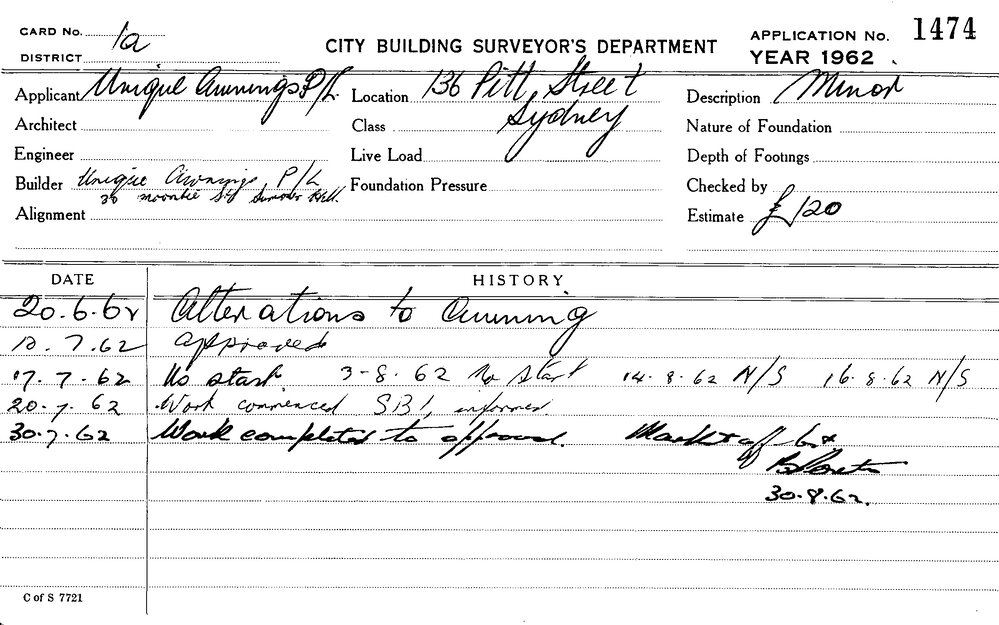 CARD No. 1a
DISTRICT
CITY BUILDING SURVEYOR'S DEPARTMENT
APPLICATION No. 1474
YEAR 1962
Applicant Unique Awnings P/L
Location 136 Pitt Street
Sydney
Description Minor
Architect
Class
Nature of Foundation
Engineer
Live Load
Depth of Footings
Builder Unique Awnings, P/L
36 Moonbie St, Summer Hill.
Foundation Pressure
Checked by
Alignment
Estimate £120
DATE HISTORY
20.6.62 Alterations to Awning
12.7.62 approved
17.7.62 No start. 3-8.62 No start 14.8.62 N/S 16.8.62 N/S
20.7.62 Work commenced SBI, informed
30.7.62 Work completed to approval. Marked off
30.8.62.
C of S 7721